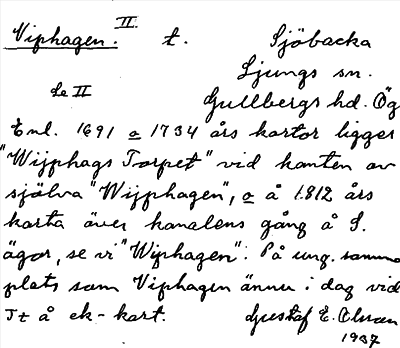 Viphagen. II. t. Sjöbacka
Ljungs sn.
Se II Gullbergs hd. Ög
Enl. 1691 o 1734 års kartor ligger
"Wijphags Torpet" vid kanten av
själva "Wijphagen", o å 1812 års
karta över kanalens gång å S.
ägor, se vi "Wiphagen": På ung. samma
plats som Viphagen ännu i dag vid
Tt å ek-kart. Gustaf E. Olsson
1937